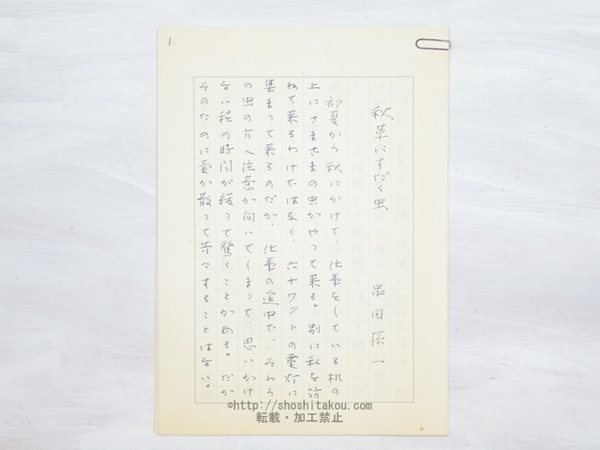 1.
秋草にすだく虫
串田孫一
初夏から秋にかけて、仕事をしている机の
上にさまざまの虫がやって来る。別に私を訪
ねて来るわけではなく、六十ワットの電灯に
集まって来るのだが、仕事の途中で、それら
の虫の方へ注意が向いてしまって、思いがけ
ない程の時間が経って驚くことがある。だが
そのために気が散って苦々することはない。
©http://shoshitakou.com/
転載・加工禁止